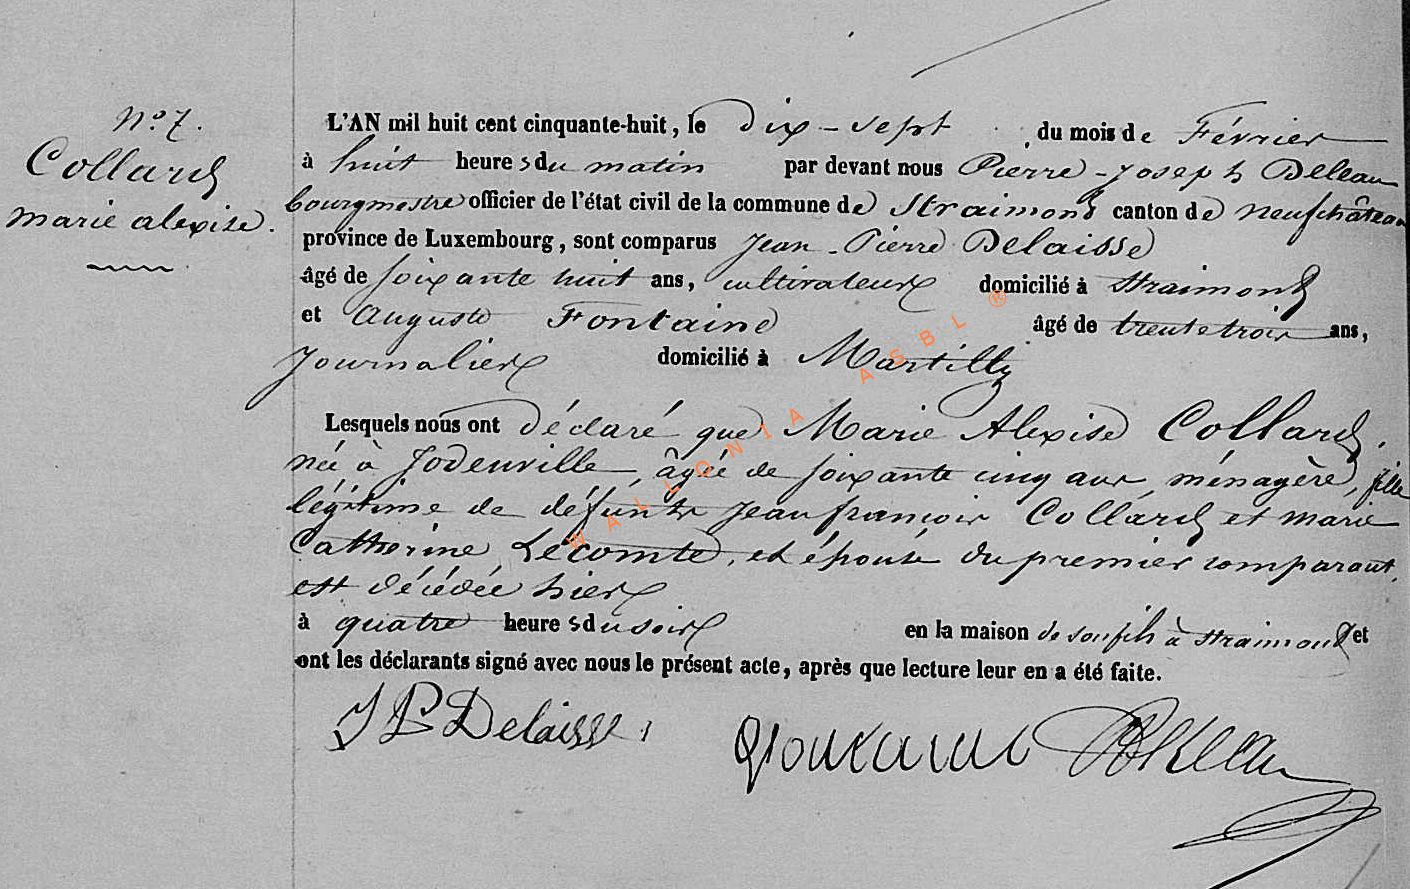 N° 7.
Collard
marie alexise.
L'AN mil huit cent cinquante-huit, le dix-sept du mois de Février
à huit heures du matin par devant nous Pierre-Joseph Deleau
bourgmestre officier de l'état civil de la commune de Straimont canton de neufchâteau
province de Luxembourg, sont comparus Jean-Pierre Delaisse
âgé de soixante huit ans, cultivateur domicilié à Straimont
et Auguste Fontaine âgé de trente trois ans,
Journalier domicilié à Martilly
Lesquels nous ont déclaré que Marie Alexise Collard,
née à Jodenville, âgée de soixante cinq ans, ménagère, fille
légitime de défunts Jean françois Collard et marie
Catherine Lecomte, et épouse du premier comparant,
est décédée hier
à quatre heures du soir en la maison de son fils à Straimont et
ont les déclarants signé avec nous le présent acte, après que lecture leur en a été faite.
J P Delaisse
WALLONIA ASBL ®